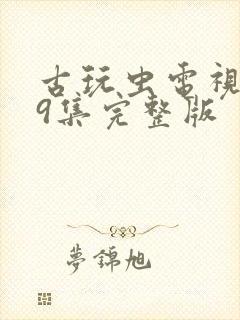 古玩虫電視
9集完整版
夢錦旭